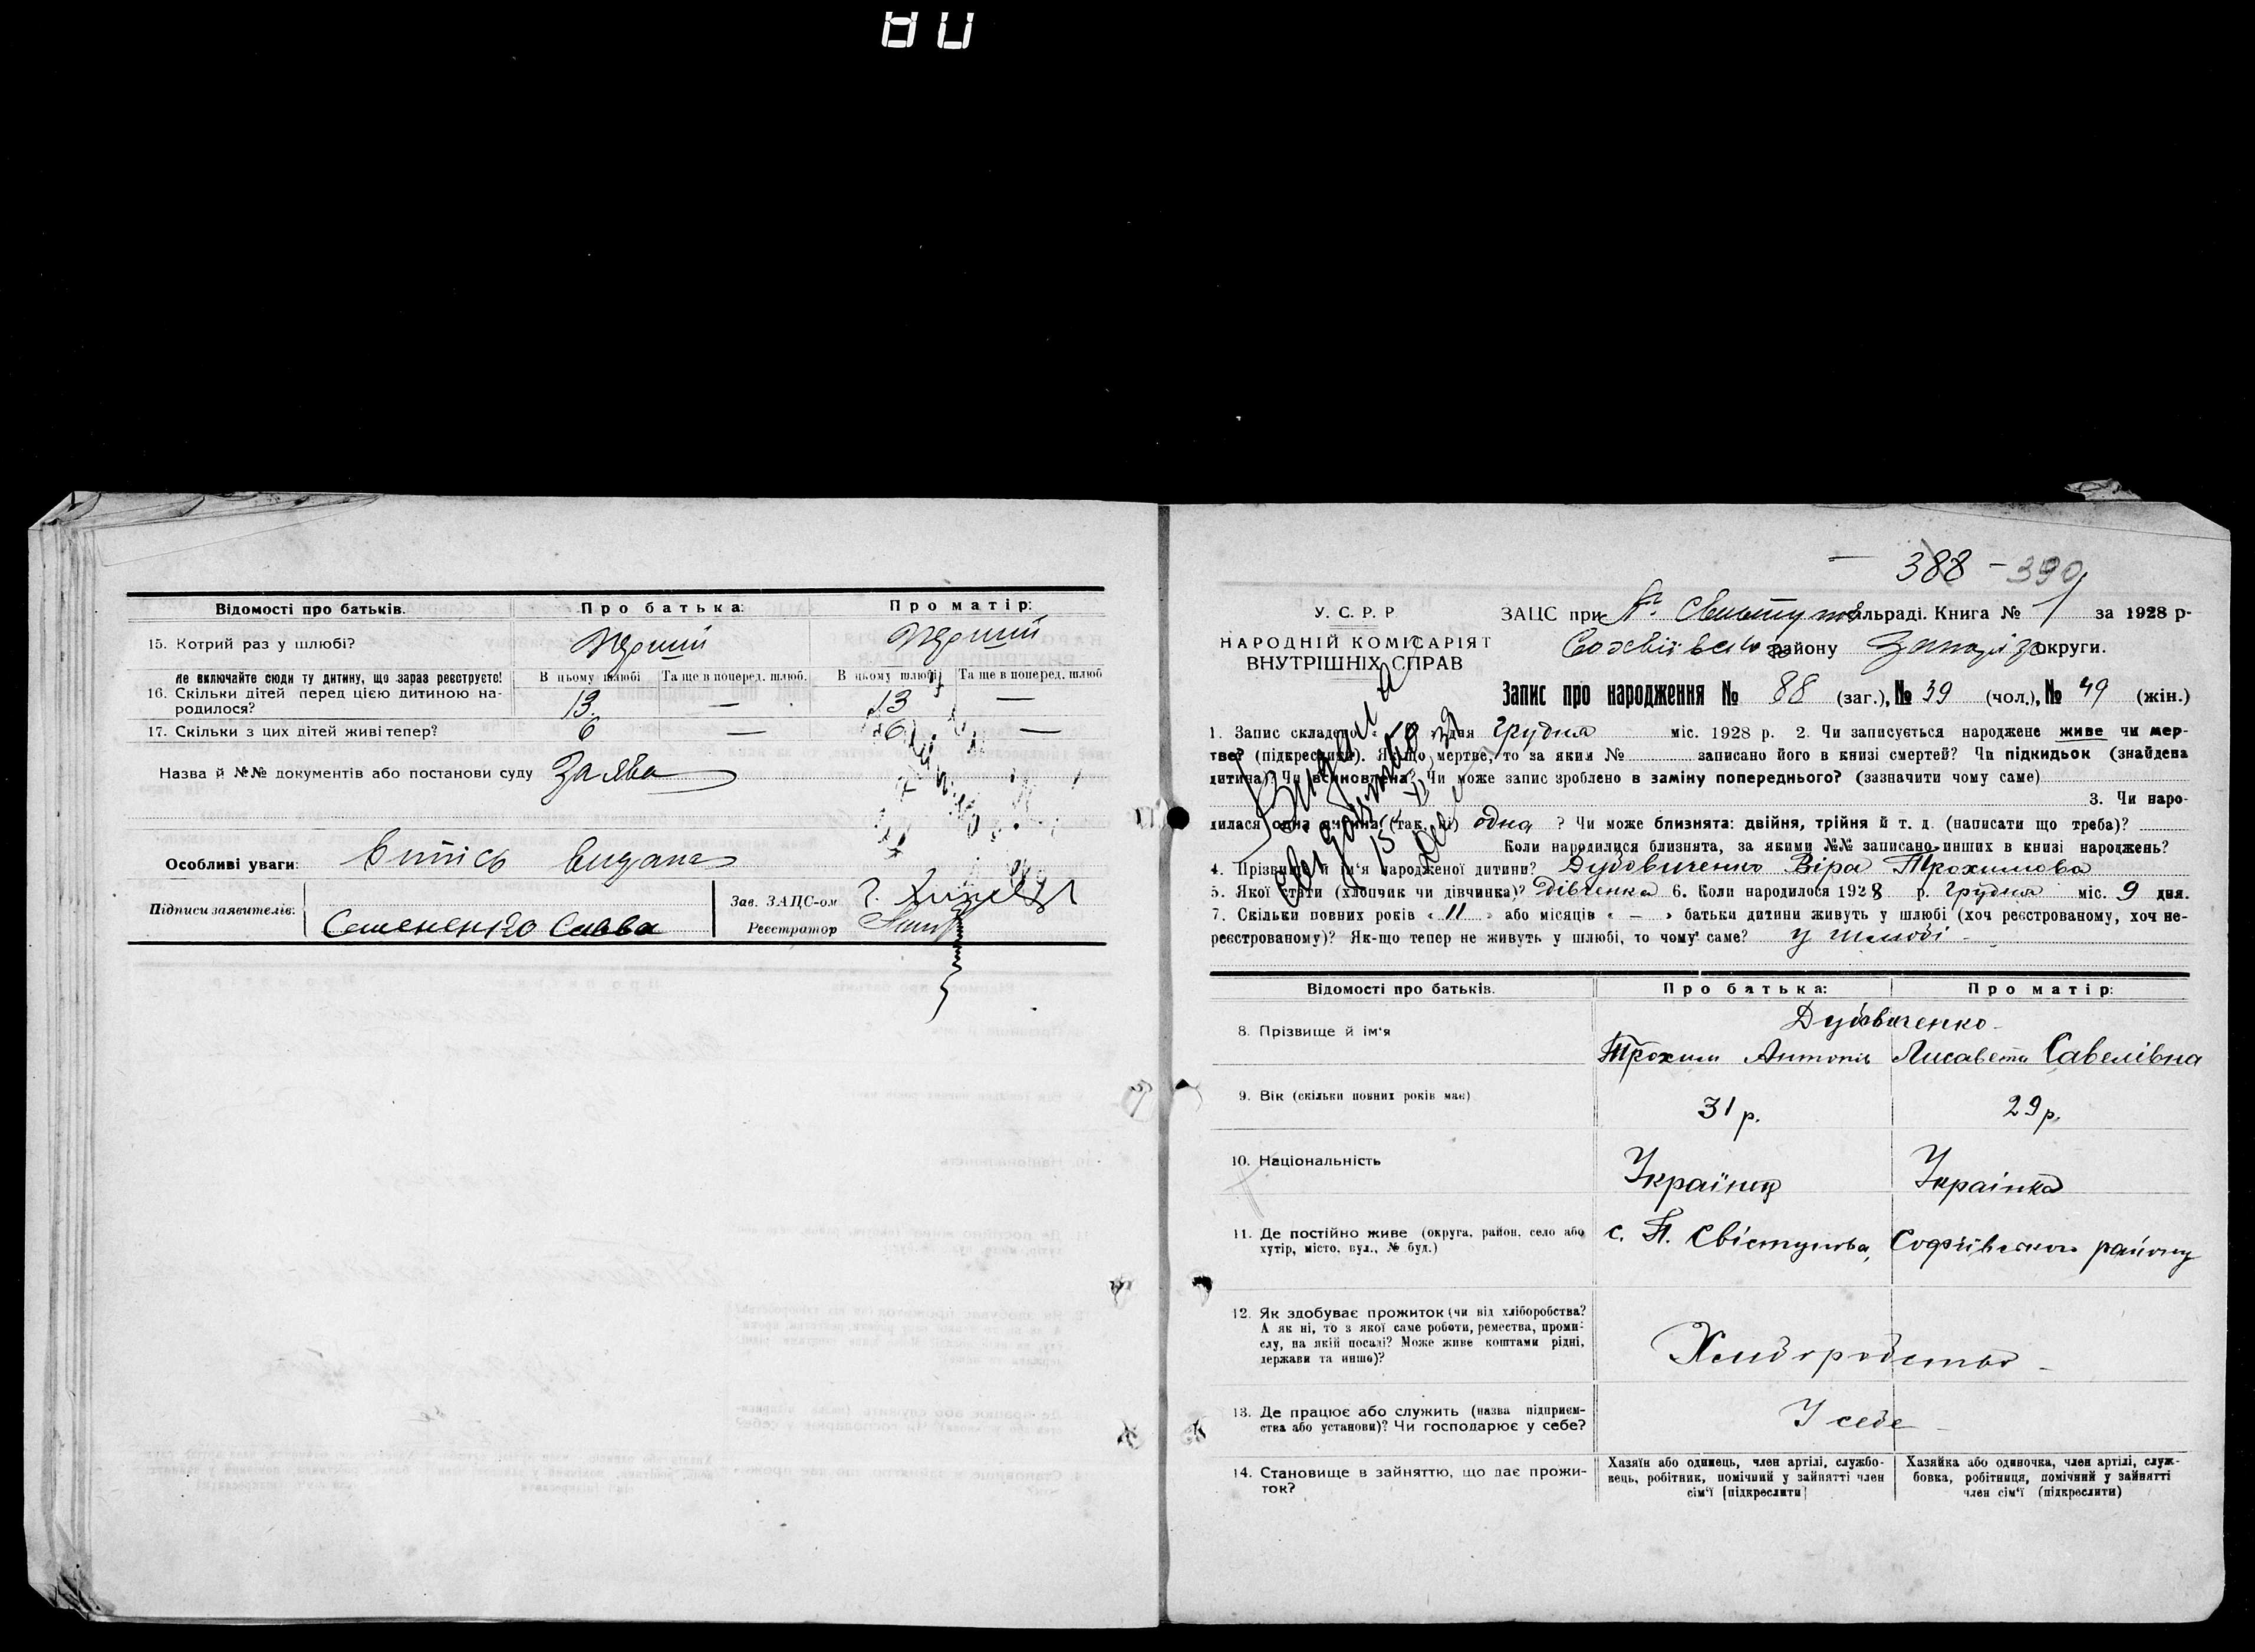 80
Відомості про батьків. Про батька: Про матір:
15. Котрий раз у шлюбі? Перший Перший
Не включайте сюди ту дитину, що зараз реєструєте! В цьому шлюбі Та ще в поперед. шлюб. В цьому шлюбі Та ще в поперед. шлюб
16. Скільки дітей перед цією дитиною на-
родилося? 13 — 13 —
17. Скільки з цих дітей живі тепер? 6 — 6 —
Назва й №№ документів або постанови суду Заява
Особливі уваги: Витісь видана
Підписи заявителів: Семененко Савва
Зав. ЗАЦС-ом
Реєстратор
388 - 390
У. С. Р. Р
НАРОДНІЙ КОМІСАРІЯТ
ВНУТРІШНІХ СПРАВ
ЗАЦС при сільраді. Книга № 1 за 1928 р-
району округи.
Запис про народження № 88 (заг.), № 39 (чол.), № 49 (жін.)
1. Запис складено дня Грудня міс. 1928 р. 2. Чи записується народжене живе чи мер-
тве? (підкреслити). Якщо мертве, то за яким № записано його в книзі смертей? Чи підкидьок (знайдена
дитина)? Чи всиновлена? Чи може запис зроблено в заміну попереднього? (зазначити чому саме)
3. Чи наро-
дилася одна дитина (так, ні) одна ? Чи може близнята: двійня, трійня й т. д. (написати що треба)?
Коли народилися близнята, за якими №№ записано инших в книзі народжень?
4. Прізвище й ім'я народженої дитини? Дубовиченко Віра Трохимова
5. Якої стати (хлопчик чи дівчинка)? Дівченка 6. Коли народилося 1928 р. Грудня міс. 9 дня.
7. Скільки повних років « 11 » або місяців « — » батьки дитини живуть у шлюбі (хоч реєстрованому, хоч не-
реєстрованому)? Як-що тепер не живуть у шлюбі, то чому саме? у шлюбі
Відомості про батьків. Про батька: Про матір:
Дубовиченко
8. Прізвище й ім'я Трохим Антонів Лисавета Савелівна
9. Вік (скільки повних років має) 31 р. 29 р.
10. Національність Українец Українка
11. Де постійно живе (округа, район, село або с. П. Свістунова, Софіївського району
хутір, місто, вул., № буд.)
12. Як здобуває прожиток (чи від хліборобства?
А як ні, то з якої саме роботи, ремества, проми-
слу, на якій посаді? Може живе коштами рідні,
держави та инше)? Хлиборобство
13. Де працює або служить (назва підприєм-
ства або установи)? Чи господарює у себе? У себе
14. Становище в зайняттю, що дає прожи-
ток?
Хазяїн або одинець, член артілі, службо-
вець, робітник, помічний у зайнятті член
сім'ї (підкреслити)
Хазяйка або одиночка, член артілі, служ-
бовка, робітниця, помічний у зайнятті
член сім'ї (підкреслити)